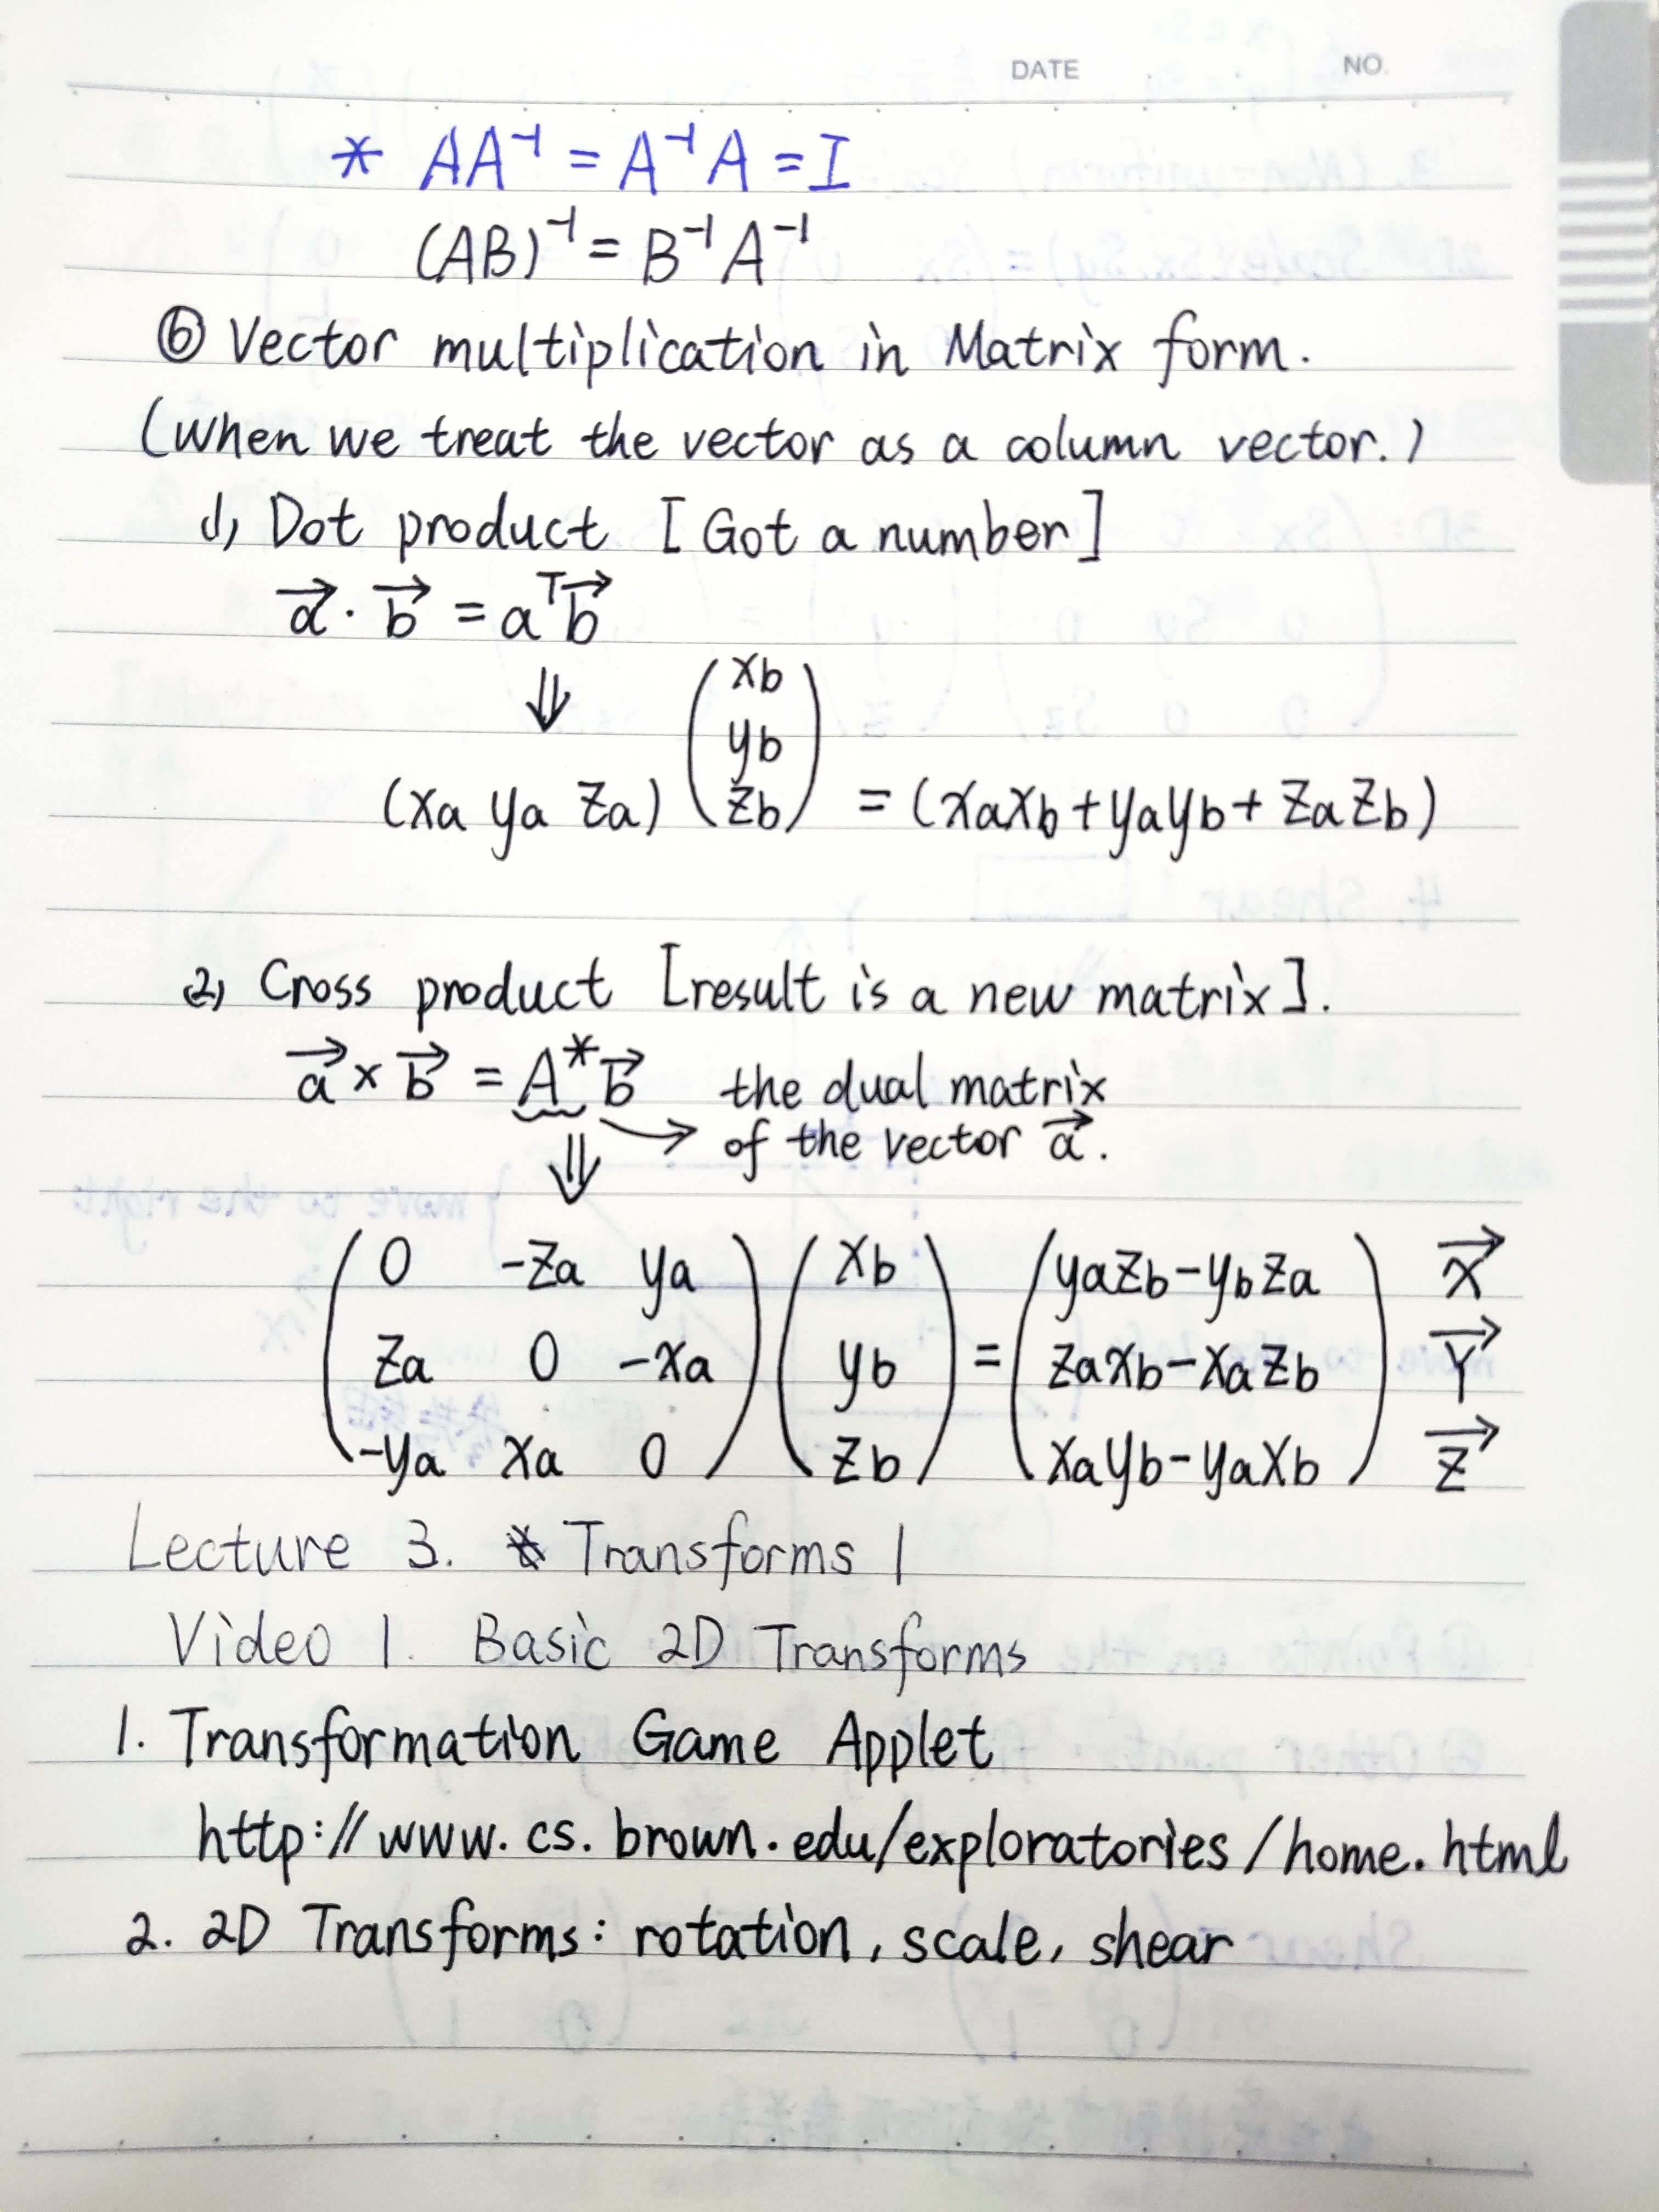 DATE NO.
* AA⁻¹ = A⁻¹A = I
(AB)⁻¹ = B⁻¹A⁻¹
⑥ Vector multiplication in Matrix form.
(when we treat the vector as a column vector.)
(1) Dot product [Got a number]
a⃗ · b⃗ = aᵀb⃗
⇓
(xa ya za) (xb yb zb) = (xaxb + yayb + zazb)
(2) Cross product [result is a new matrix].
a⃗ × b⃗ = A*b⃗ the dual matrix
⇓ → of the vector a⃗.
(0 -za ya) (xb) = (yazb - ybza) X⃗
(za 0 -xa) (yb) = (zaxb - xazb) Y⃗
(-ya xa 0) (zb) = (xayb - yaxb) Z⃗
Lecture 3. Transforms 1
Video 1. Basic 2D Transforms
1. Transformation Game Applet
http://www.cs.brown.edu/exploratories/home.html
2. 2D Transforms: rotation, scale, shear